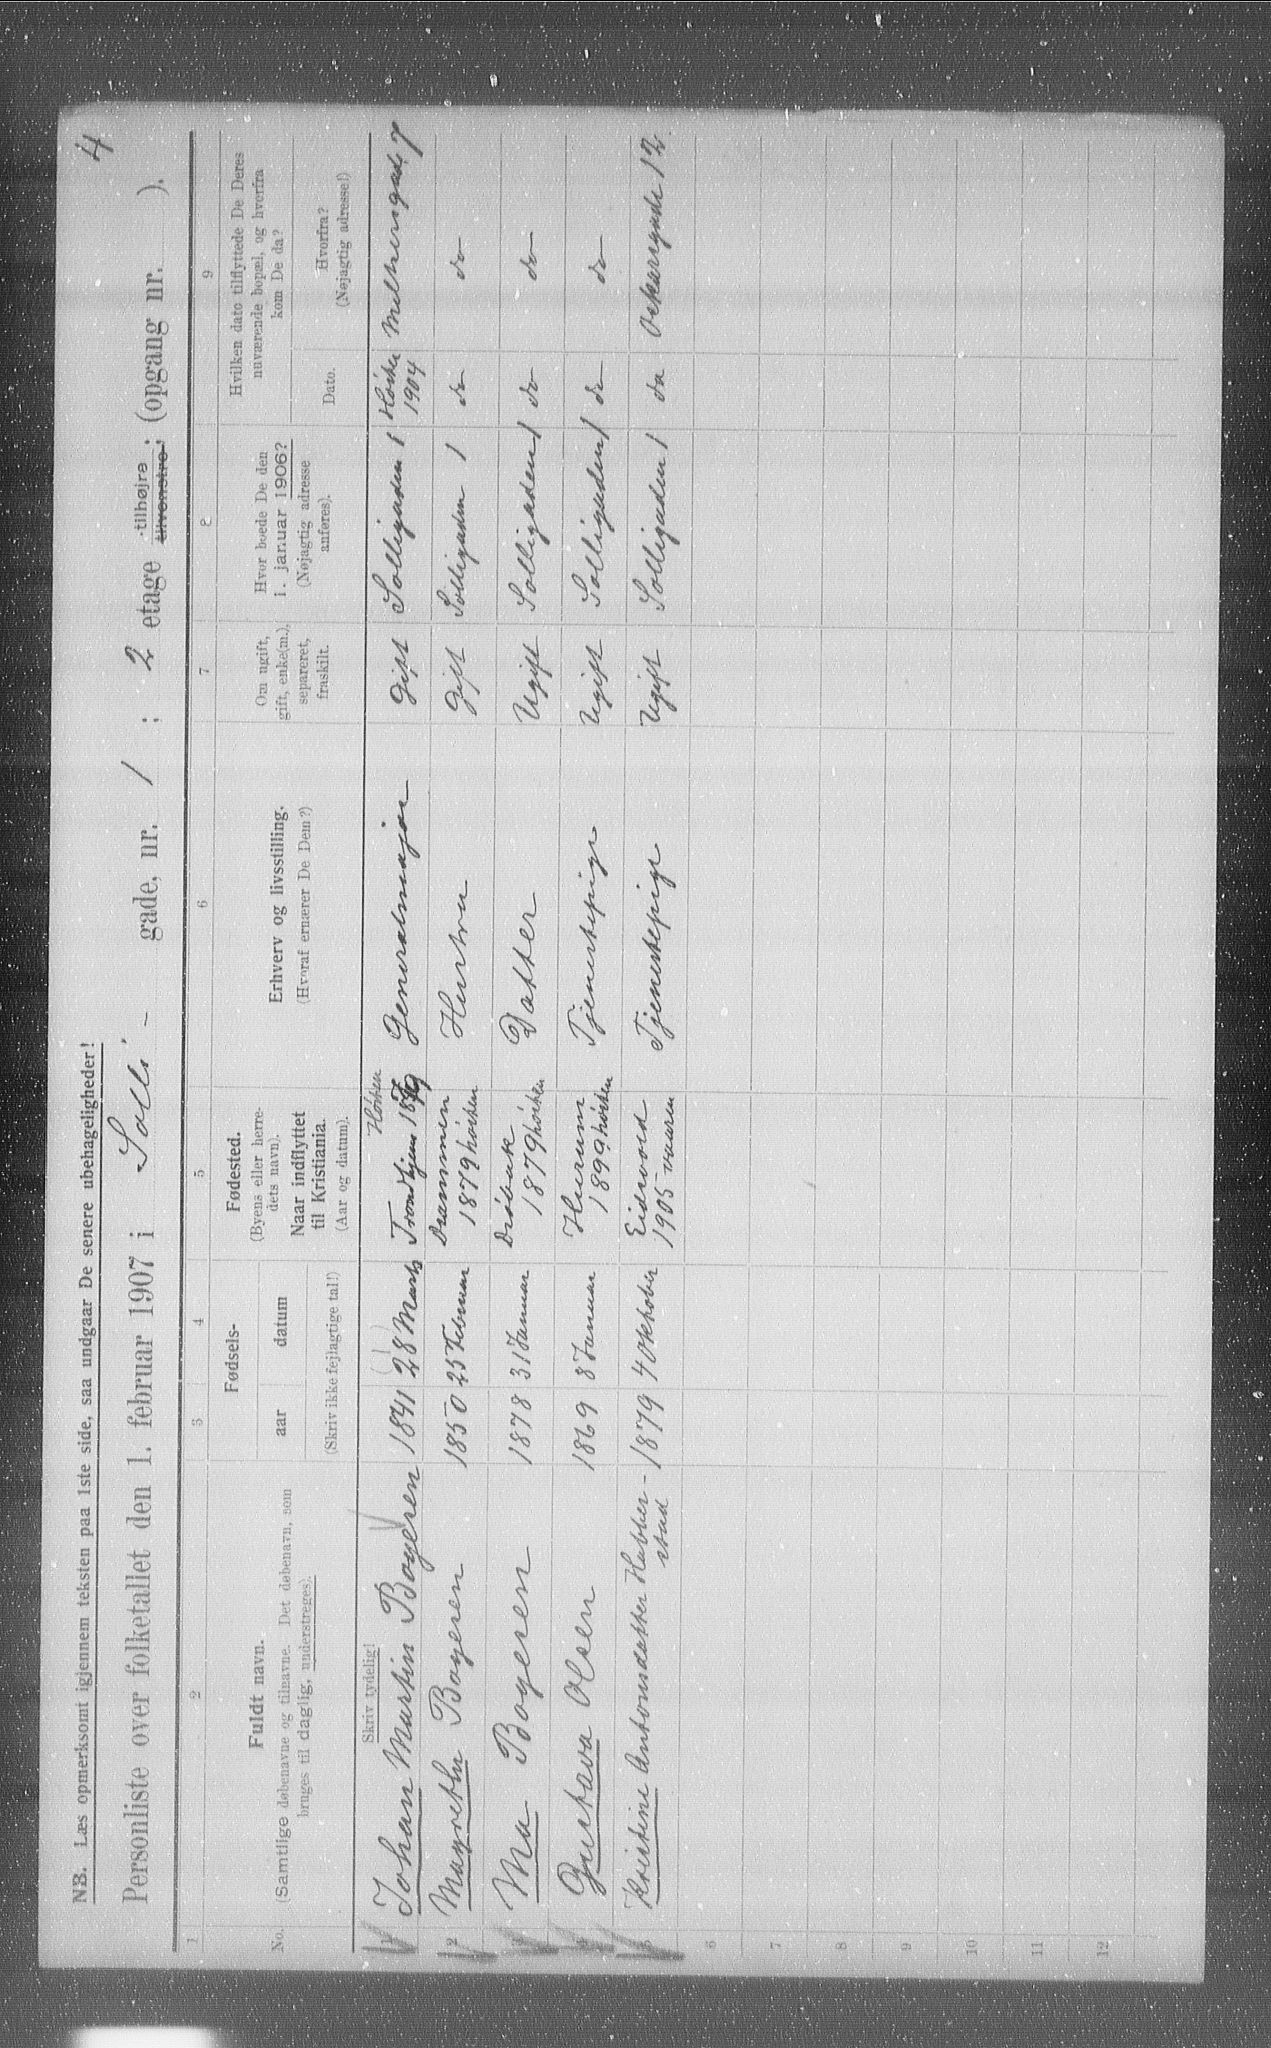 4
NB. Læs opmerksomt igjennem teksten paa 1ste side, saa undgaar De senere ubehageligheder!
Personliste over folketallet den 1. februar 1907 i Solli - gade, nr. 1 : 2 etage tilhøjre tilvenstre; (opgang nr. ).
1 2 3 4 5 6 7 8 9
No.
Fuldt navn.
(Samtlige døbenavne og tilnavne. Det døbenavn, som
bruges til daglig, understreges).
Fødsels-
aar datum
(Skriv ikke fejlagtige tal!)
Fødested.
(Byens eller herre-
dets navn).
Naar indflyttet
til Kristiania.
(Aar og datum).
Erhverv og livsstilling.
(Hvoraf ernærer De Dem?)
Om ugift,
gift, enke(m.),
separeret,
fraskilt.
Hvor boede De den
1. januar 1906?
(Nøjagtig adresse
anføres).
Hvilken dato tilflyttede De Deres
nuværende bopæl, og hvorfra
kom De da?
Dato.
Hvorfra?
(Nøjagtig adresse!)
Skriv tydelig!
1 Johan Martin Boyesen 1841 28 Marts Trondhjem Høsten Generalmajor Gift Solligaden 1 Høsten 1904 7
2 Magrethe Boyesen 1850 25 Februar Drammen 1879 høsten Hustru Gift Solligaden 1 do do
3 Boyesen 1878 31 Januar Drøbak 1879 høsten Datter Ugift Solligaden 1 do do
4 Gustava Olsen 1869 8 Januar Hurum 1899 høsten Tjenestepige Ugift Solligaden 1 do do
5 Kristine Antonsdatter 1879 4 Oktober Eidsvold 1905 vaaren Tjenestepige Ugift Solligaden 1 do Oskarsgade 12
6
7
8
9
10
11
12